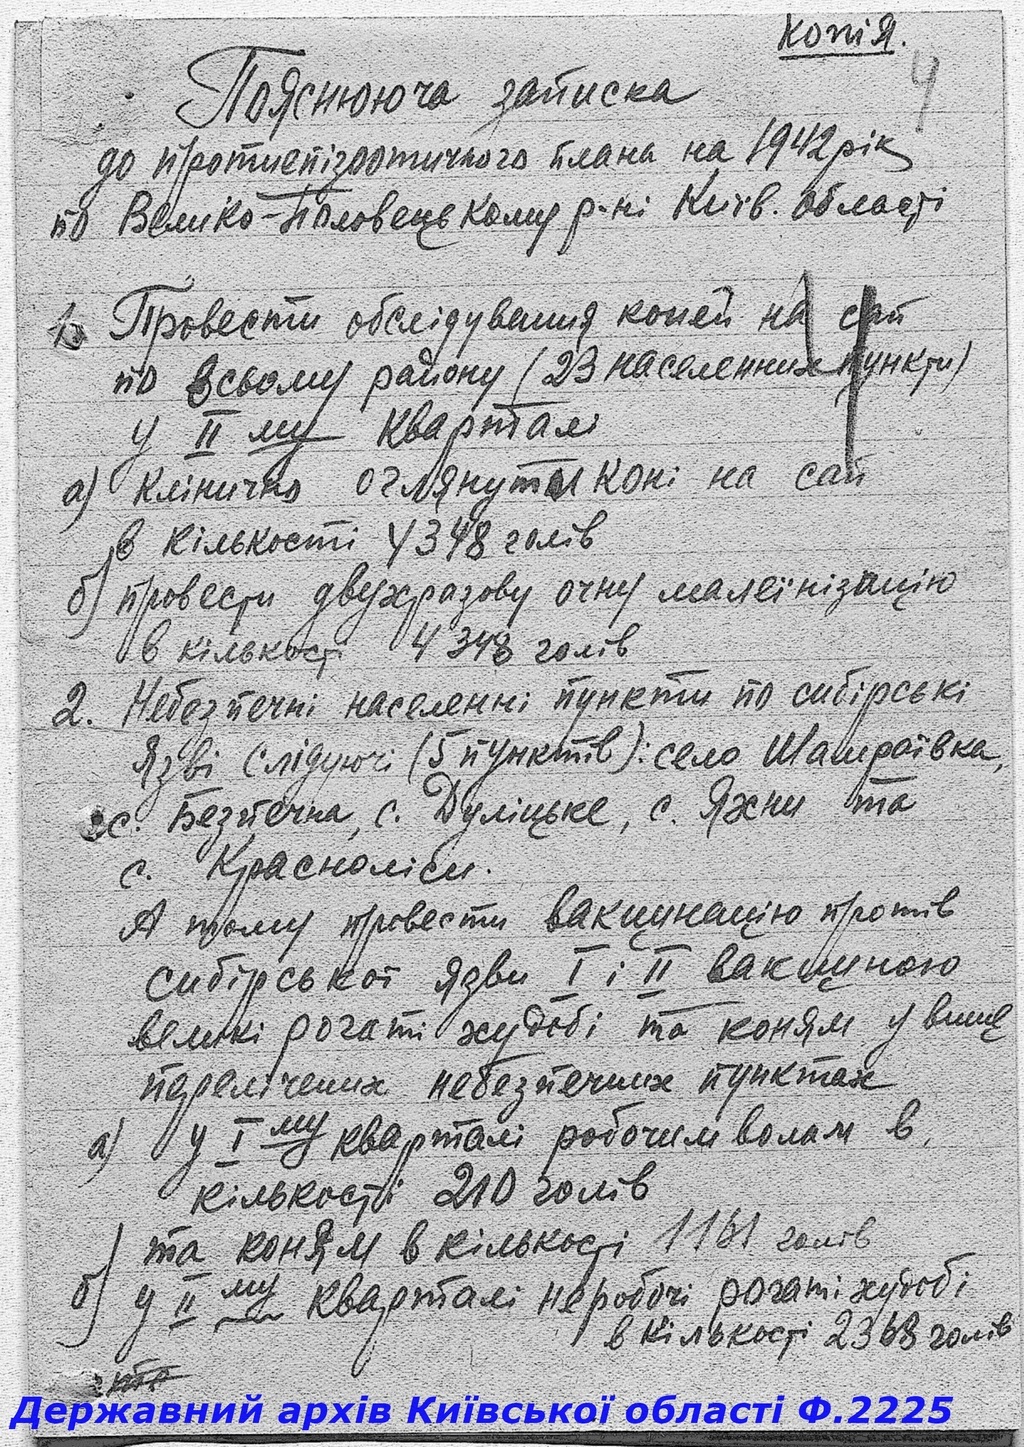 Копія.
4
Пояснююча записка
до протиепізоотичного плана на 1942 рік
по Веліко-Половецькому р-ні Київ. області
1. Провести обслідування коней на сап
по всьому району (23 населенних пункти)
у II му кварталі
а) клінично оглянути коні на сап
в кількості 4348 голів
б) провести двухразову очну малеїнізацію
в кількості 4348 голів
2. Небезпечні населенні пункти по сибірські
язві слідуючі (5 пунктів): село Шамраївка,
с. Безпечна, с. Дуліцьке, с. Яхни та
с. Красноліси.
А тому провести вакцинацію протів
сибірської язви I і II вакциною
великі рогаті худобі та коням у више
перелічених небезпечних пунктах
а) у I му кварталі робочим волам в
кількості 210 голів
та коням в кількості 1161 голів
б) у II му кварталі неробочі рогаті худобі
в кількості 2368 голів
Державний архів Київської області Ф.2225